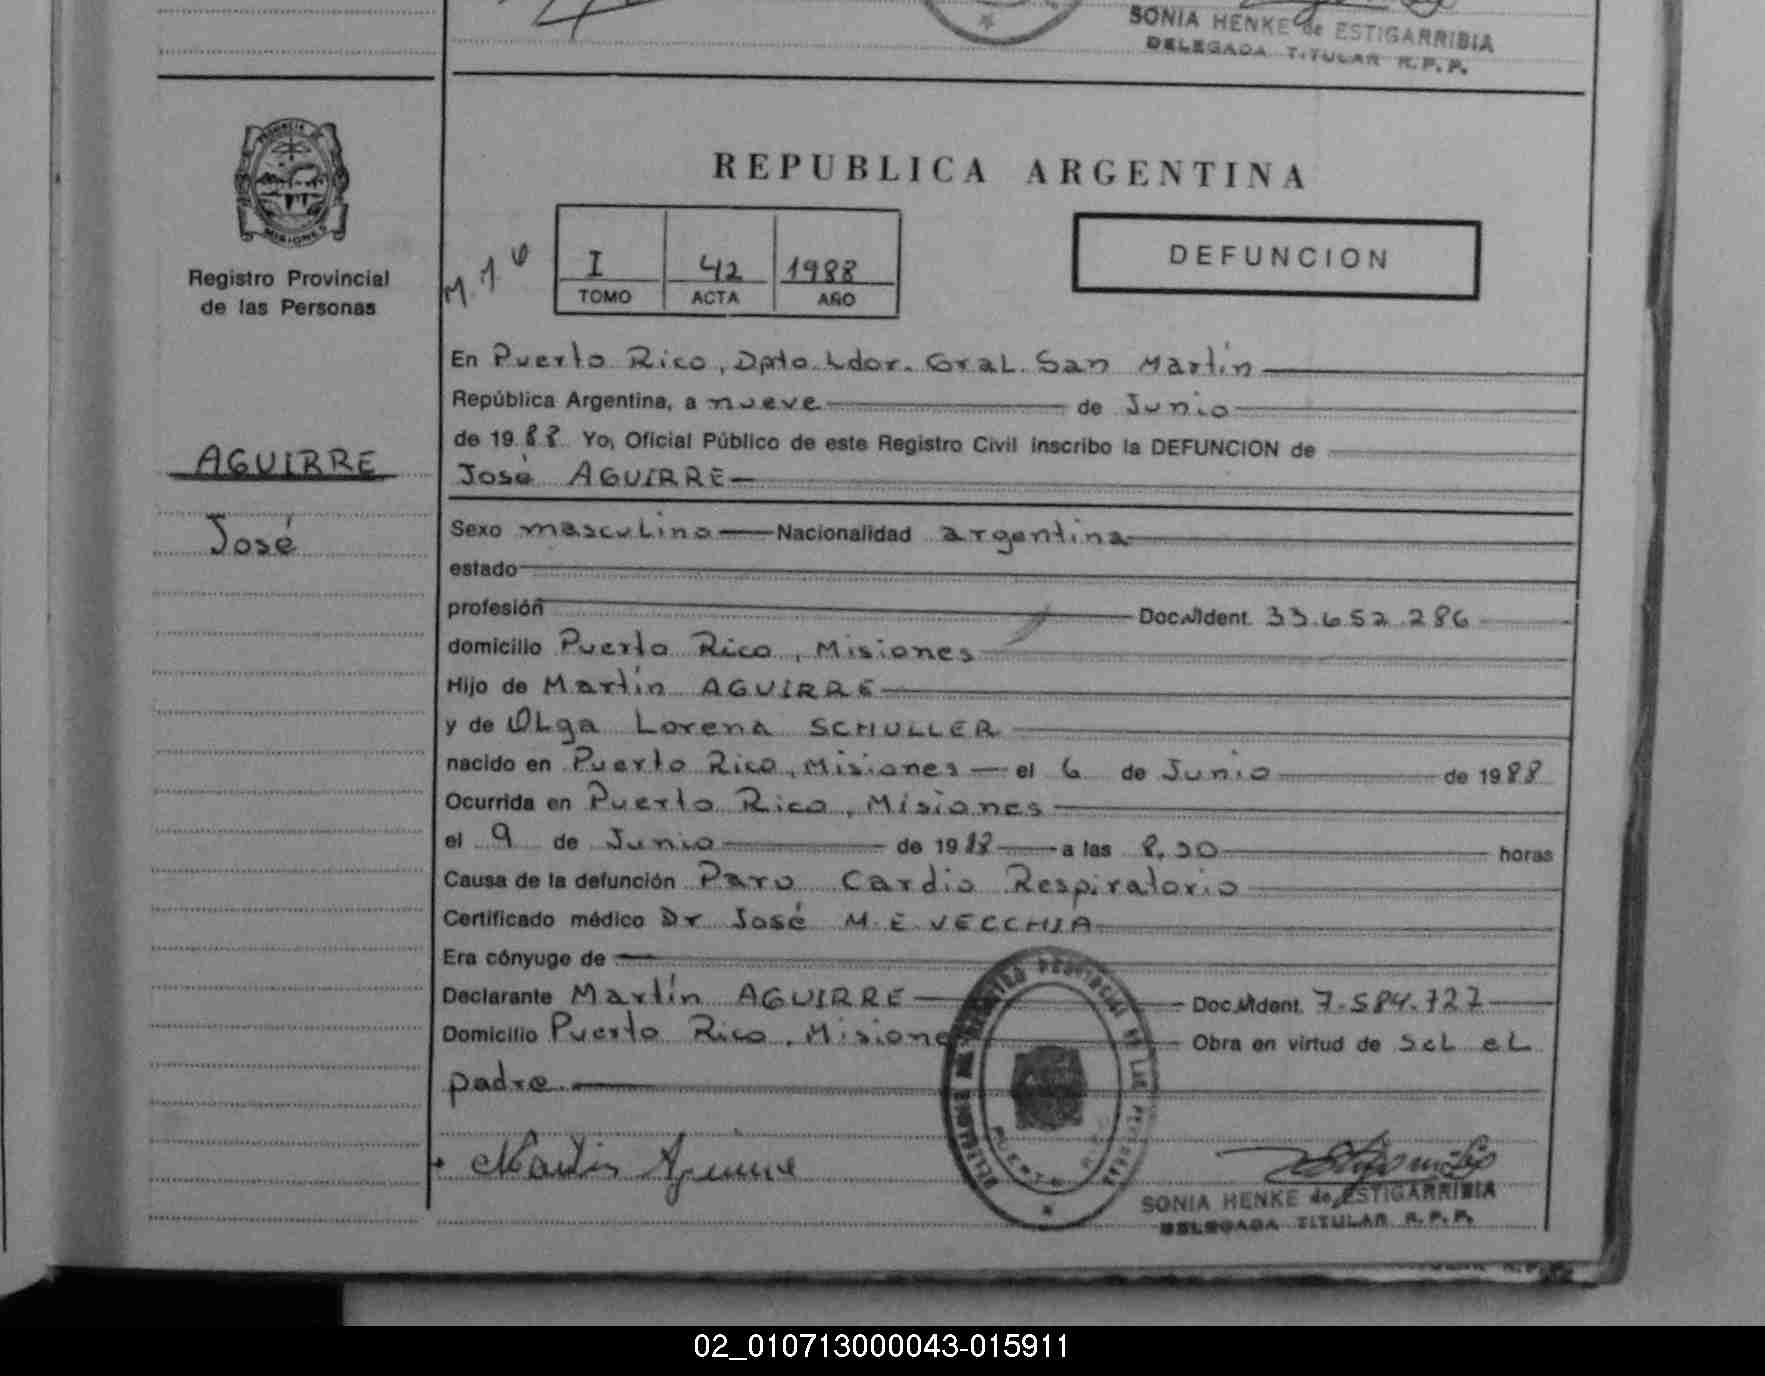 SONIA HENKE de ESTIGARRIBIA
DELEGADA TITULAR R.P.P.
PROVINCIA DE
MISIONES
Registro Provincial
de las Personas
AGUIRRE
José
REPUBLICA ARGENTINA
DEFUNCION
I 42 1988
TOMO ACTA AÑO
En Puerto Rico, Dpto. Ldor. Gral. San Martín
República Argentina, a nueve de Junio
de 1988 Yo, Oficial Público de este Registro Civil inscribo la DEFUNCION de
José AGUIRRE
Sexo masculino Nacionalidad argentina
estado
profesión Doc. Ident. 33.652.286
domicilio Puerto Rico, Misiones
Hijo de Martín AGUIRRE
y de Olga Lorena SCHULLER
nacido en Puerto Rico, Misiones el 6 de Junio de 1988
Ocurrida en Puerto Rico, Misiones
el 9 de Junio de 1988 a las 8.30 horas
Causa de la defunción Paro Cardio Respiratorio
Certificado médico Dr José M. E. VECCHIA
Era cónyuge de
Declarante Martín AGUIRRE Doc. Ident. 7.584.727
Domicilio Puerto Rico, Misiones Obra en virtud de Sel el
padre
Martin Aguirre
SONIA HENKE de ESTIGARRIBIA
DELEGADA TITULAR R.P.P.
02_010713000043-015911